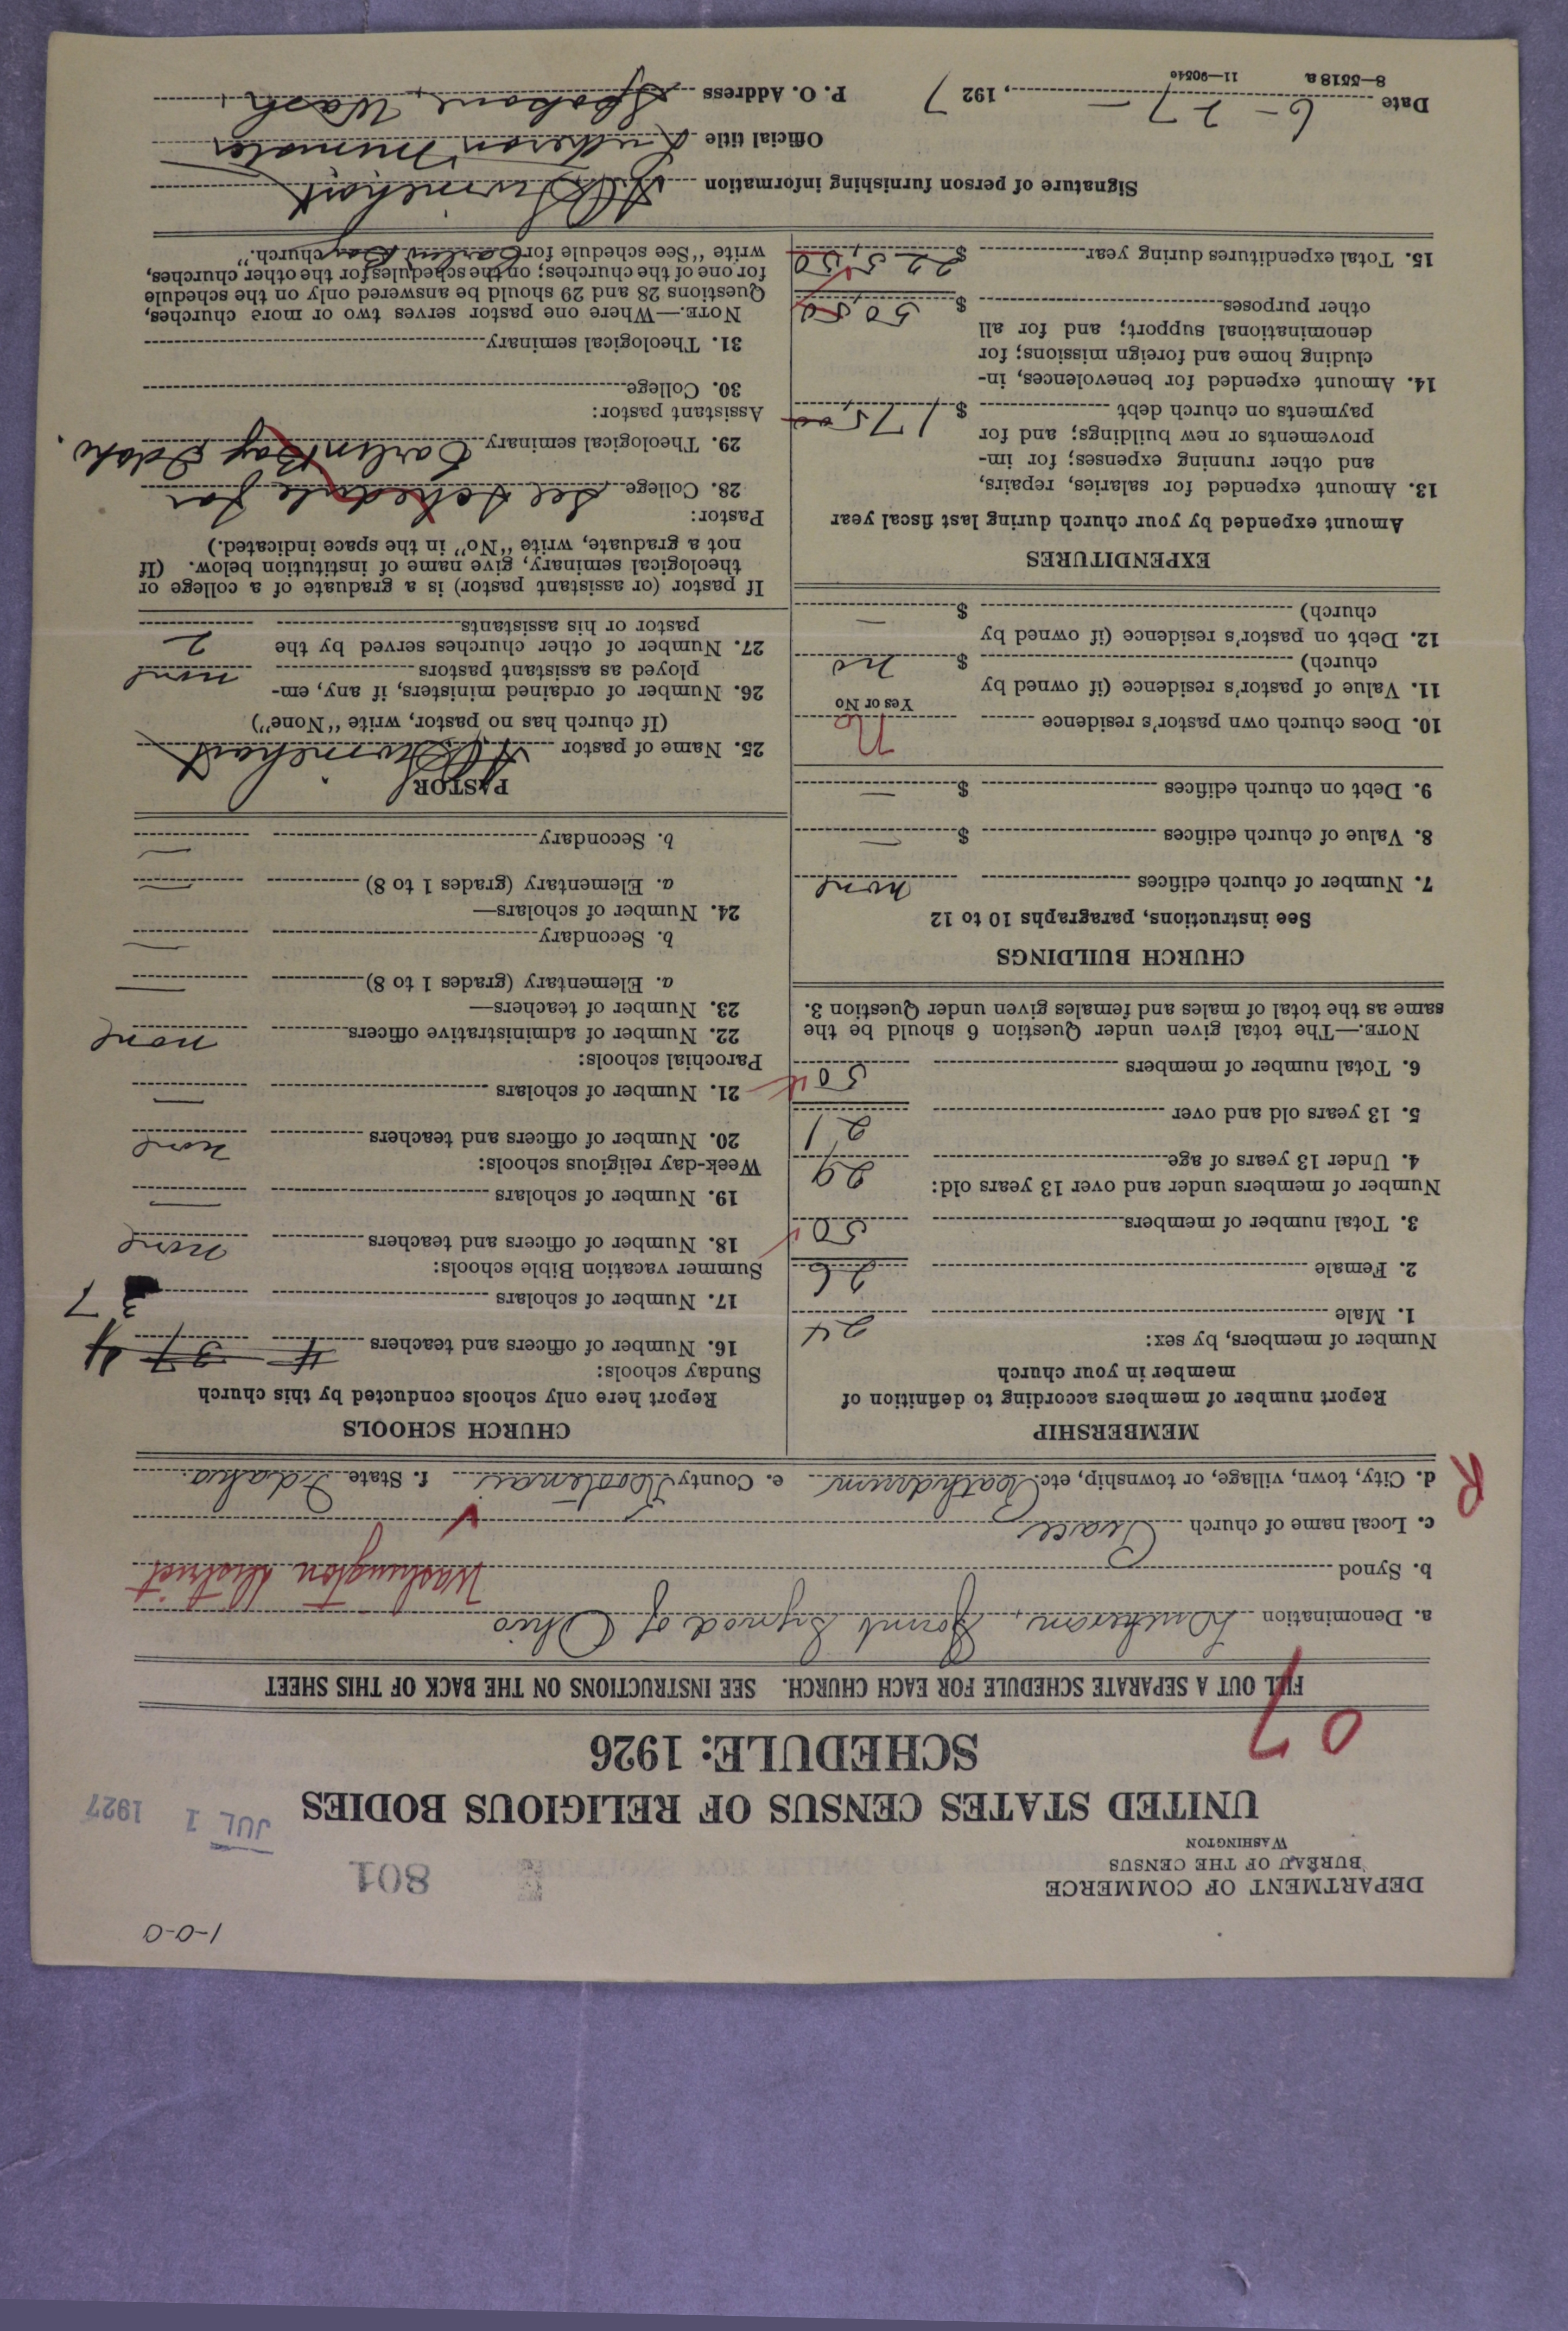 1-0-0
DEPARTMENT OF COMMERCE
BUREAU OF THE CENSUS
WASHINGTON
801
JUL 1 1927
UNITED STATES CENSUS OF RELIGIOUS BODIES
SCHEDULE: 1926
07
FILL OUT A SEPARATE SCHEDULE FOR EACH CHURCH. SEE INSTRUCTIONS ON THE BACK OF THIS SHEET
a. Denomination Lutheran, Joint Synod of Ohio
b. Synod Washington District
c. Local name of church Peace
R
d. City, town, village, or township, etc. Rathdrum e. County Kootenai f. State Idaho.
MEMBERSHIP
Report number of members according to definition of
member in your church
Number of members, by sex:
1. Male 24
2. Female 26
3. Total number of members 50
Number of members under and over 13 years old:
4. Under 13 years of age 29
5. 13 years old and over 21
6. Total number of members 50
NOTE.—The total given under Question 6 should be the
same as the total of males and females given under Question 3.
CHURCH BUILDINGS
See instructions, paragraphs 10 to 12
7. Number of church edifices none
8. Value of church edifices $ —
9. Debt on church edifices $ —
10. Does church own pastor's residence No
Yes or No
11. Value of pastor's residence (if owned by
church) $ no
12. Debt on pastor's residence (if owned by
church) $ —
EXPENDITURES
Amount expended by your church during last fiscal year
13. Amount expended for salaries, repairs,
and other running expenses; for im-
provements or new buildings; and for
payments on church debt $ 175.00
14. Amount expended for benevolences, in-
cluding home and foreign missions; for
denominational support; and for all
other purposes $ 50.50
15. Total expenditures during year $ 225.50
CHURCH SCHOOLS
Report here only schools conducted by this church
Sunday schools:
16. Number of officers and teachers 4 37 4
17. Number of scholars 37
Summer vacation Bible schools:
18. Number of officers and teachers none
19. Number of scholars —
Week-day religious schools:
20. Number of officers and teachers none
21. Number of scholars —
Parochial schools:
22. Number of administrative officers none
23. Number of teachers—
a. Elementary (grades 1 to 8) —
b. Secondary —
24. Number of scholars—
a. Elementary (grades 1 to 8) —
b. Secondary —
PASTOR
25. Name of pastor
(If church has no pastor, write "None")
26. Number of ordained ministers, if any, em-
ployed as assistant pastors none
27. Number of other churches served by the
pastor or his assistants 2
If pastor (or assistant pastor) is a graduate of a college or
theological seminary, give name of institution below. (If
not a graduate, write "No" in the space indicated.)
Pastor:
28. College See schedule for
29. Theological seminary Carlin Bay Idaho.
Assistant pastor:
30. College
31. Theological seminary
NOTE.—Where one pastor serves two or more churches,
Questions 28 and 29 should be answered only on the schedule
for one of the churches; on the schedules for the other churches,
write "See schedule for Carlin Bay church."
Signature of person furnishing information
Official title Lutheran Minister
Date 6-27-, 1927 P. O. Address Spokane, Wash.
8—5518 a 11—9054o